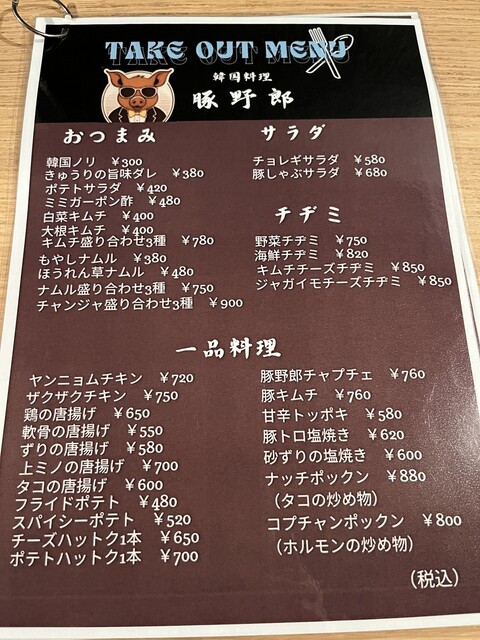 TAKE OUT MENU
韓国料理
豚野郎
おつまみ
韓国ノリ ¥300
きゅうりの旨味ダレ ¥380
ポテトサラダ ¥420
ミミガーポン酢 ¥480
白菜キムチ ¥400
大根キムチ ¥400
キムチ盛り合わせ3種 ¥780
もやしナムル ¥380
ほうれん草ナムル ¥480
ナムル盛り合わせ3種 ¥750
チャンジャ盛り合わせ3種 ¥900
サラダ
チョレギサラダ ¥580
豚しゃぶサラダ ¥680
チヂミ
野菜チヂミ ¥750
海鮮チヂミ ¥820
キムチチーズチヂミ ¥850
ジャガイモチーズチヂミ ¥850
一品料理
ヤンニョムチキン ¥720
ザクザクチキン ¥750
鶏の唐揚げ ¥650
軟骨の唐揚げ ¥550
ずりの唐揚げ ¥580
上ミノの唐揚げ ¥700
タコの唐揚げ ¥600
フライドポテト ¥480
スパイシーポテト ¥520
チーズハットク1本 ¥650
ポテトハットク1本 ¥700
豚野郎チャプチェ ¥760
豚キムチ ¥760
甘辛トッポキ ¥580
豚トロ塩焼き ¥620
砂ずりの塩焼き ¥600
ナッチポックン ¥880
（タコの炒め物）
コプチャンポックン ¥800
（ホルモンの炒め物）
（税込）